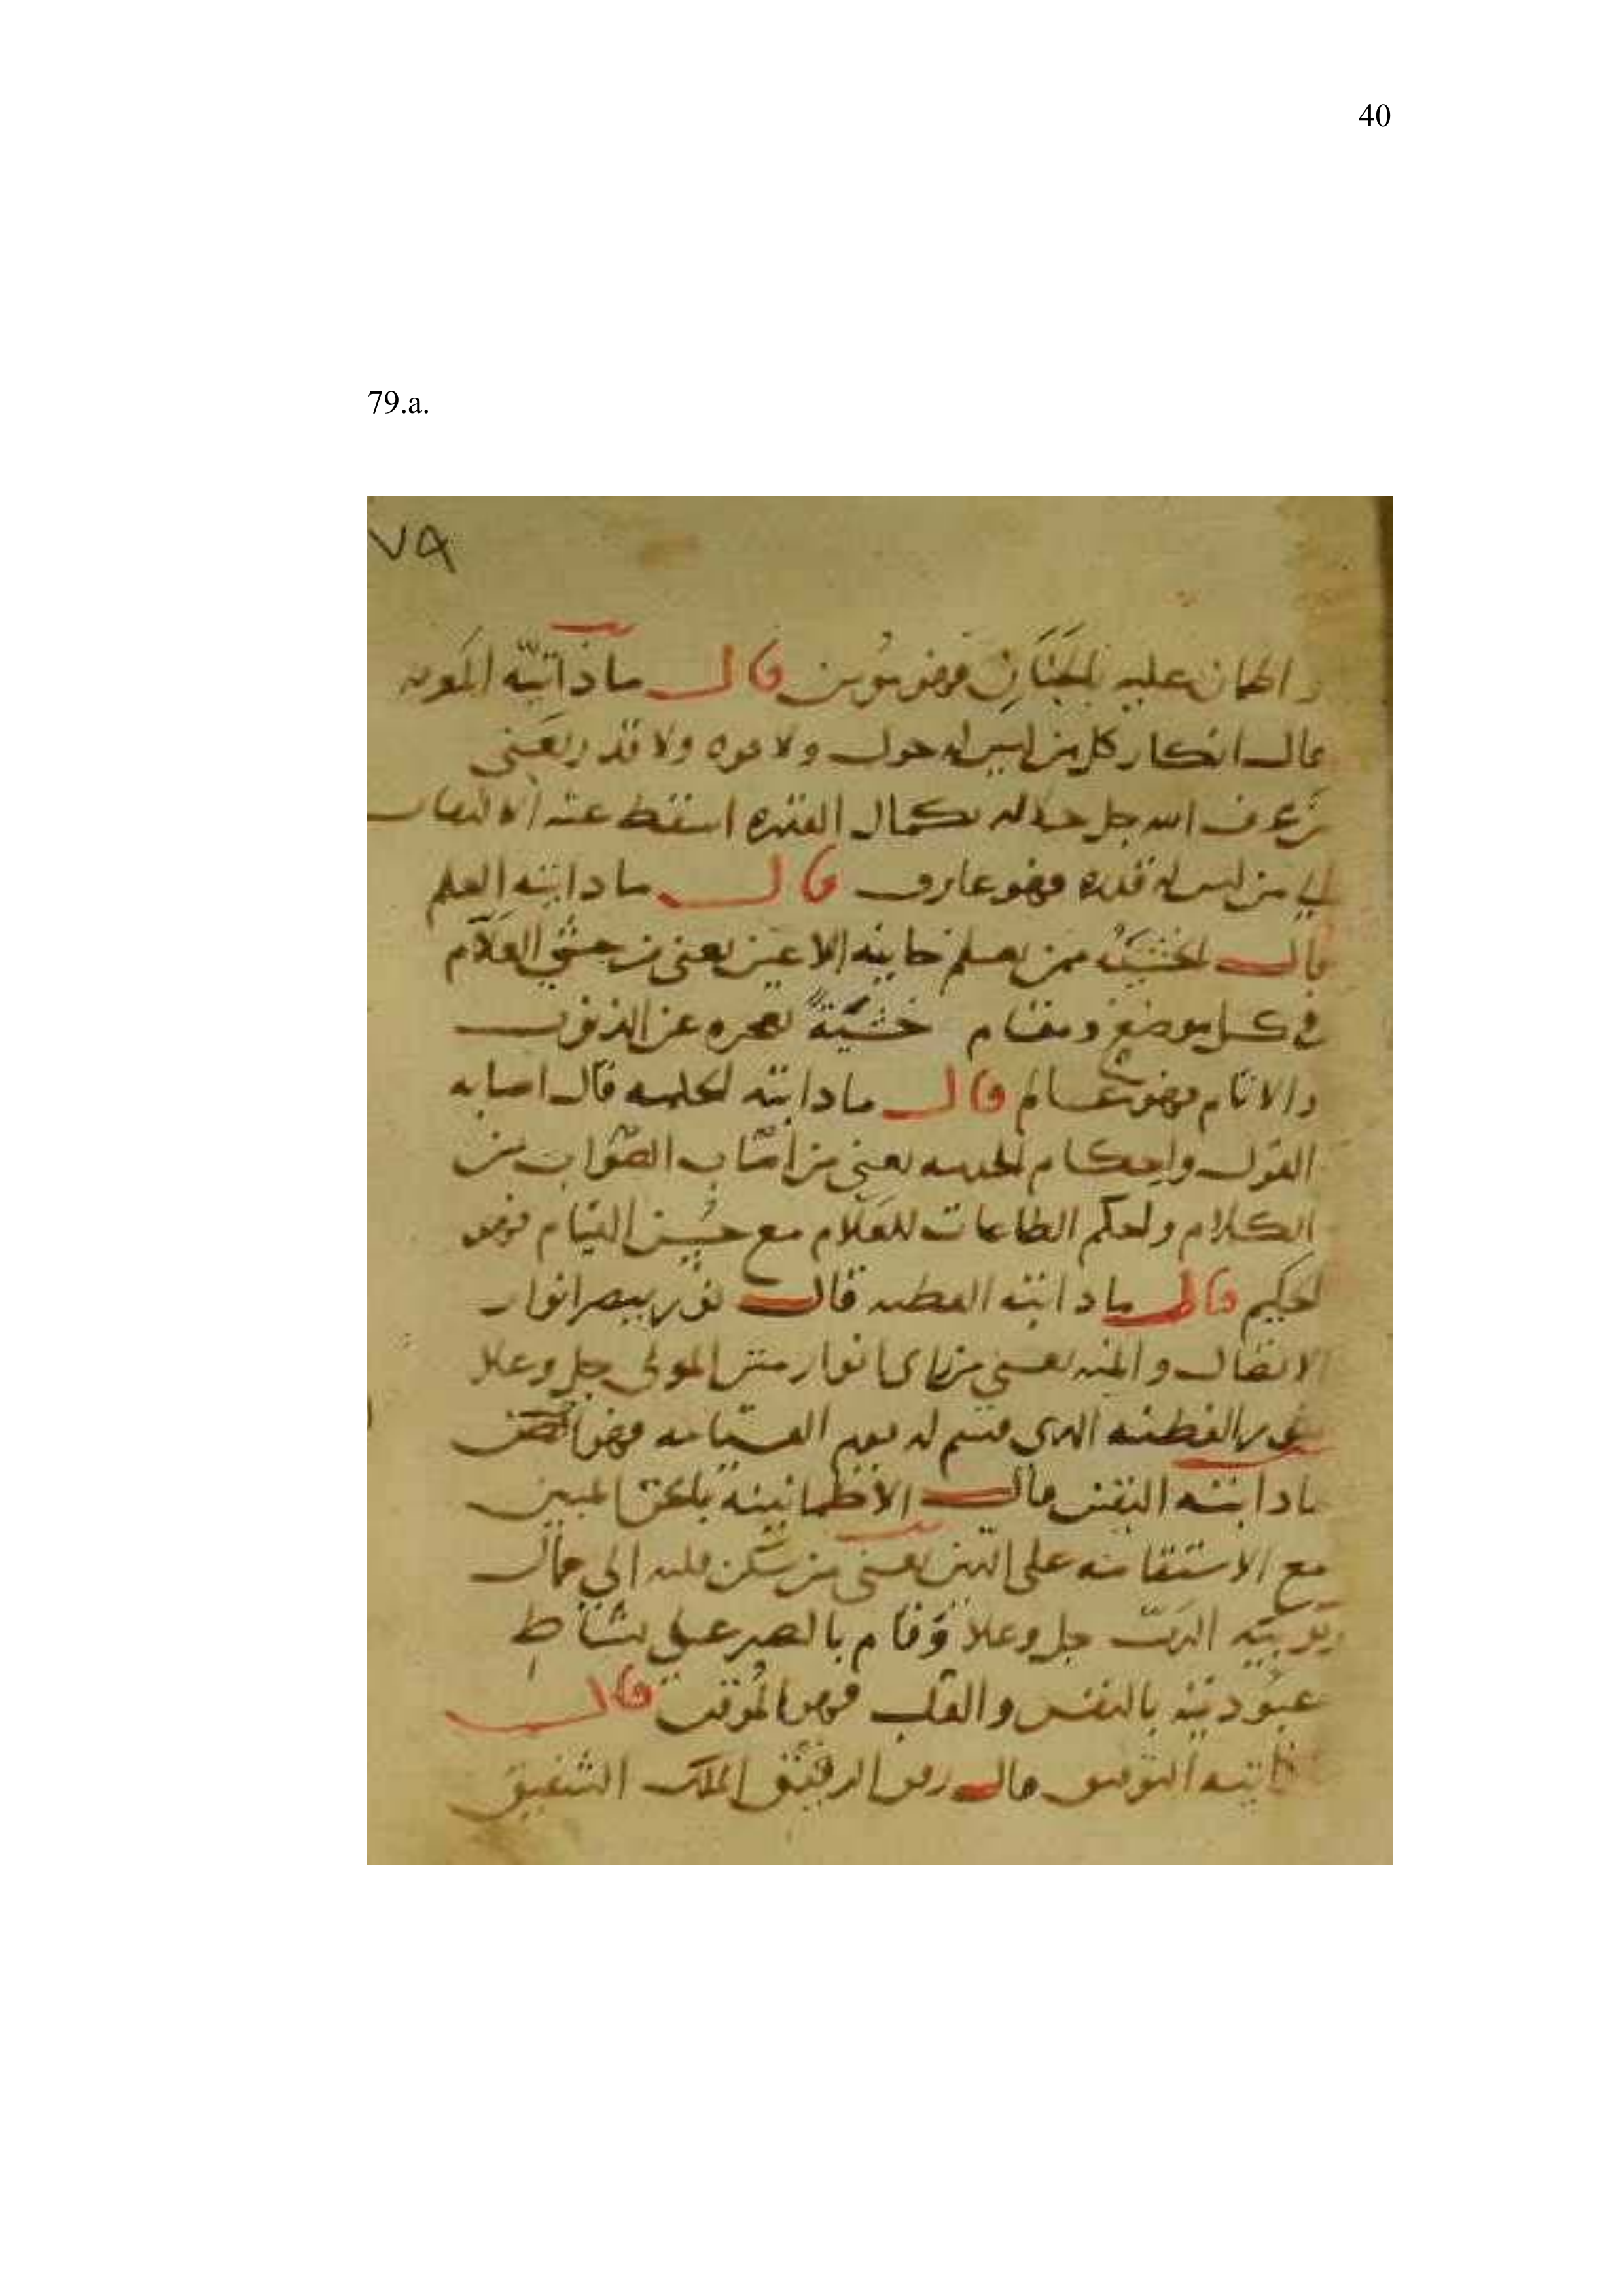 40
79.a.
٧٩
واطمان عليه الجنان فهو مومن قال ماذاتيه المعرفه
قال انكار كل من ليس له حول ولا قوه ولا قدر يعني
من عرف الله جل جلاله بكمال القدره اسقط عنه الالتفات
الي من ليس له قدره فهو عارف قال ماذاتيه العلم
قال الخشية ممن يعلم خاينه الاعين يعني من خشي العلام
في كل موضع ومقام خشية تحجره عن الذنوب
والاثام فهو عالم قال ماذاتيه الحكمه قال اصابه
القول واحكام الخدمه يعني من اصاب الصواب من
الكلام واحكم الطاعات للعلام مع حسن القيام فهو
الحكيم قال ماذاتيه الفطنه قال نور يبصر انوار
الافضال والمنه يعني من راى انوار منن المولى جل وعلا
بنور الفطنه الذي قسم له يوم القسامه فهو
ماذاتيه اليقين قال الاطمانينه بالحق المبين
مع الاستقامه على الدين يعني من سكن قلبه الي جمال
ربوبيته الرب جل وعلا وقام بالصبر على بساط
عبوديته بالنفس والقلب فهو الموقن قال
ماذاتيه التوفيق قال رفق الرفيق الملك الشفيق